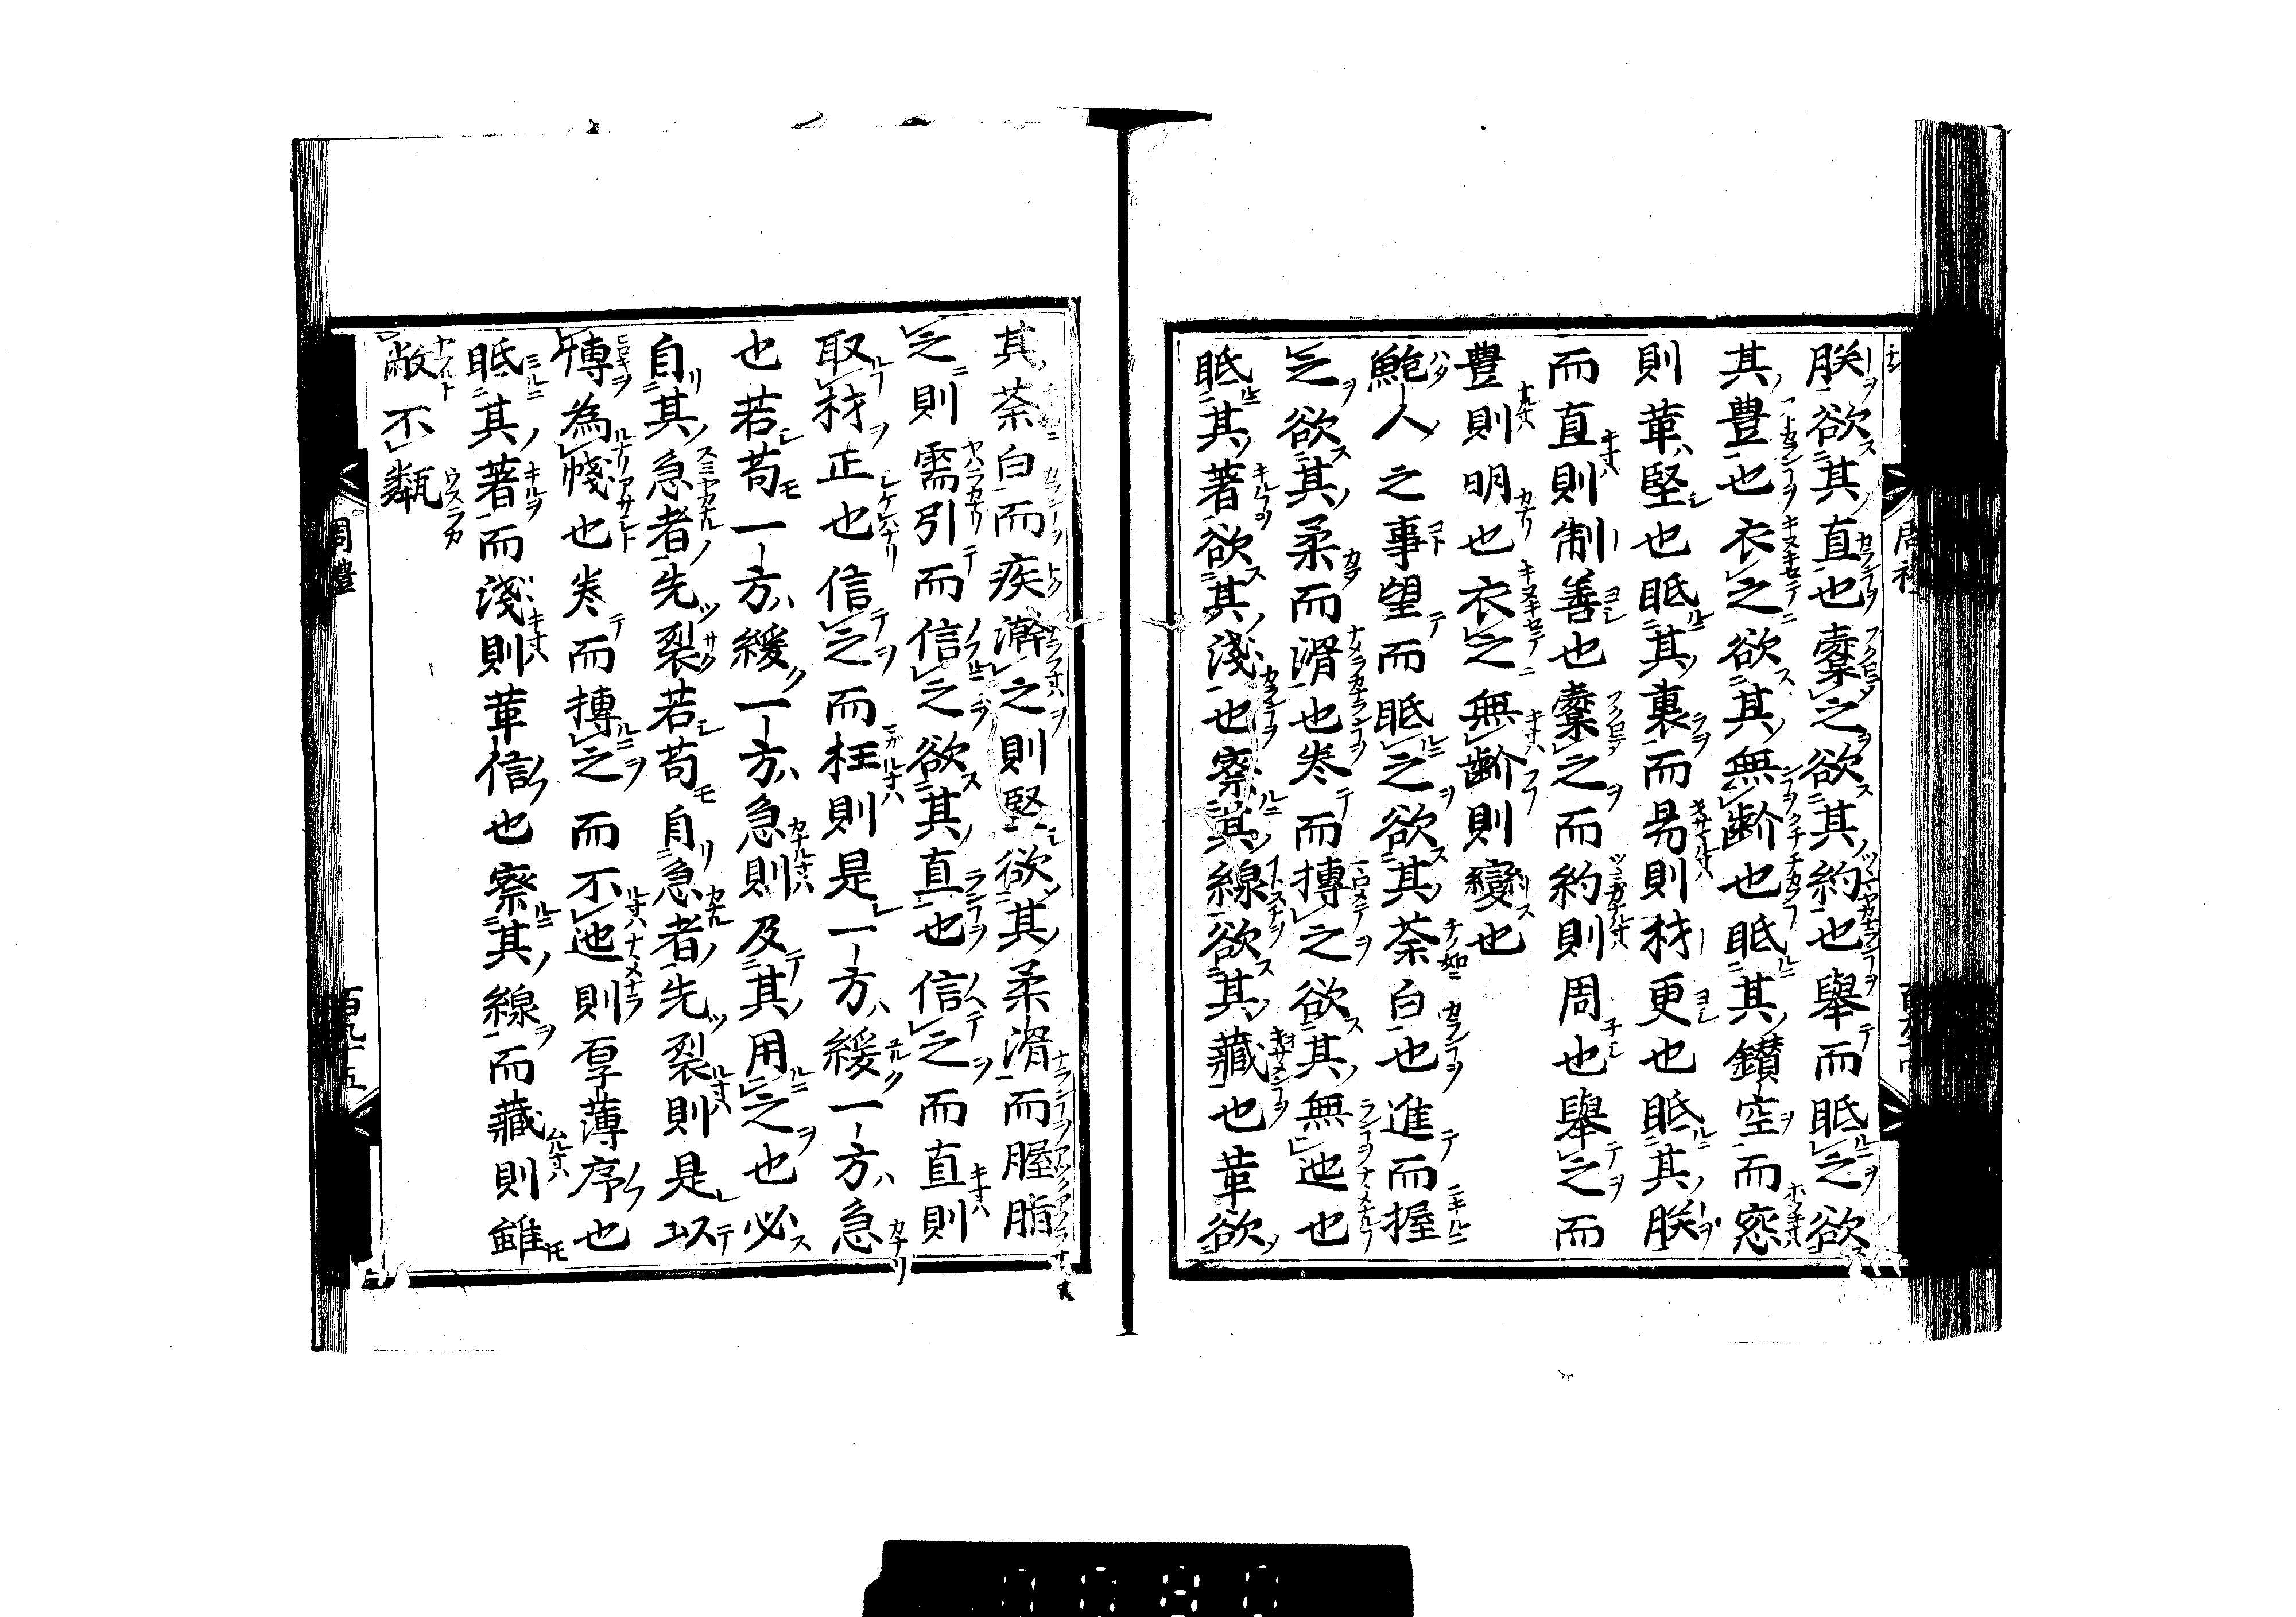 朕欲其直也櫜之欲其約也舉而眡之欲
其豊也衣之欲其無齘也眡其鑚空而窓
則革堅也眡其裏而易則材更也眡其朕
而直則制善也櫜之而約則周也舉之而
豊則明也衣之無齘則變也
鮑人之事望而眡之欲其荼白也進而握
之欲其柔而滑也卷而摶之欲其無迆也
眡其著欲其淺也察其線欲其藏也革欲
其荼白而疾澣之則堅欲其柔滑而腥脂
之則需引而信之欲其直也信之而直則
取材正也信之而枉則是一方緩一方急
也若苟一方緩一方急則及其用之也必
自其急者先裂若苟自急者先裂則是以
博為帴也卷而摶之而不迆則厚薄序也
眡其著而淺則革信也察其線而藏則雖
敝不甐
周禮
百九十五